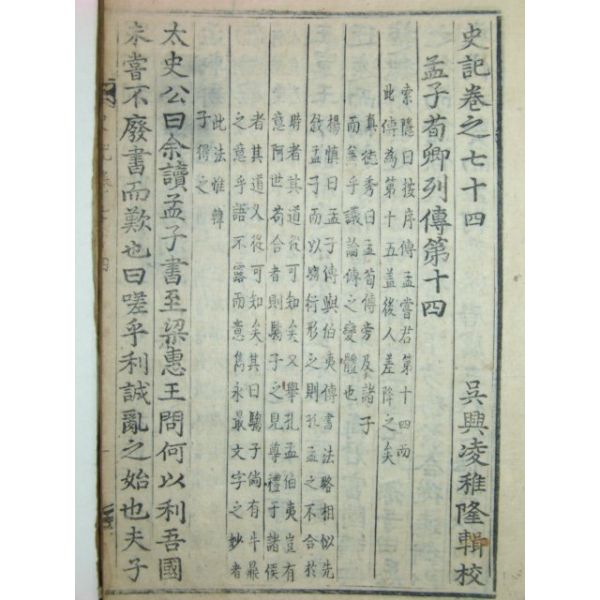 史記卷之七十四
吳興凌稚隆輯校
孟子荀卿列傳第十四
索隱曰按序傳孟嘗君第十四而
此傳為第十五蓋後人差降之矣
真德秀曰孟荀傳旁及諸子
而無乎議論傳之變體也
楊慎曰孟子傳與伯夷傳書法略相似先
敘孟子而以騶衍形之則孔孟之不合於
時者其道從可知矣又舉孔孟伯夷豈有
意阿世苟合者則騶子之見尊禮于諸侯
者其道又從可知矣其曰騶子倘有牛鼎
之意乎語不露而意雋永最文字之妙者
此法惟韓
子得之
太史公曰余讀孟子書至梁惠王問何以利吾國
未嘗不廢書而歎也曰嗟乎利誠亂之始也夫子